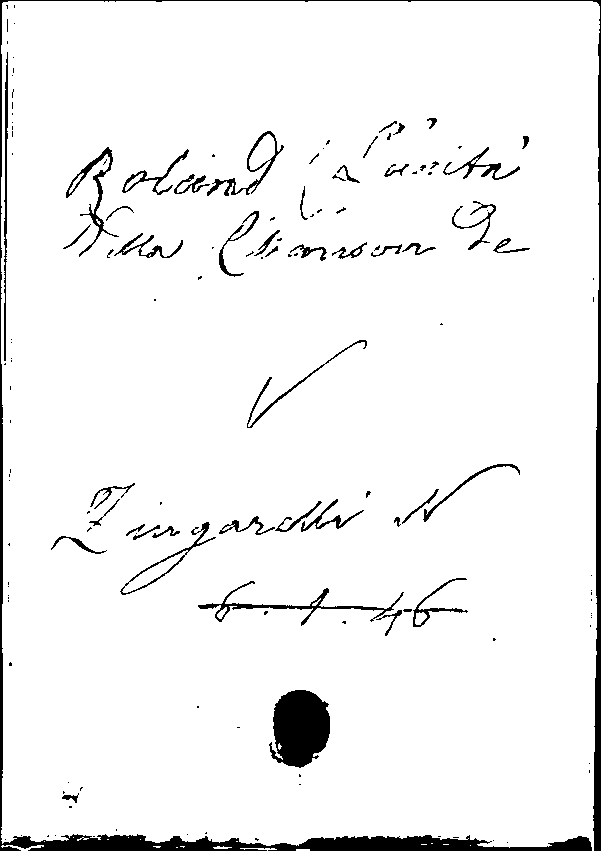 Roland (L'unità
Nella Chanson de
V
Zingarelli N
6. 1. 46